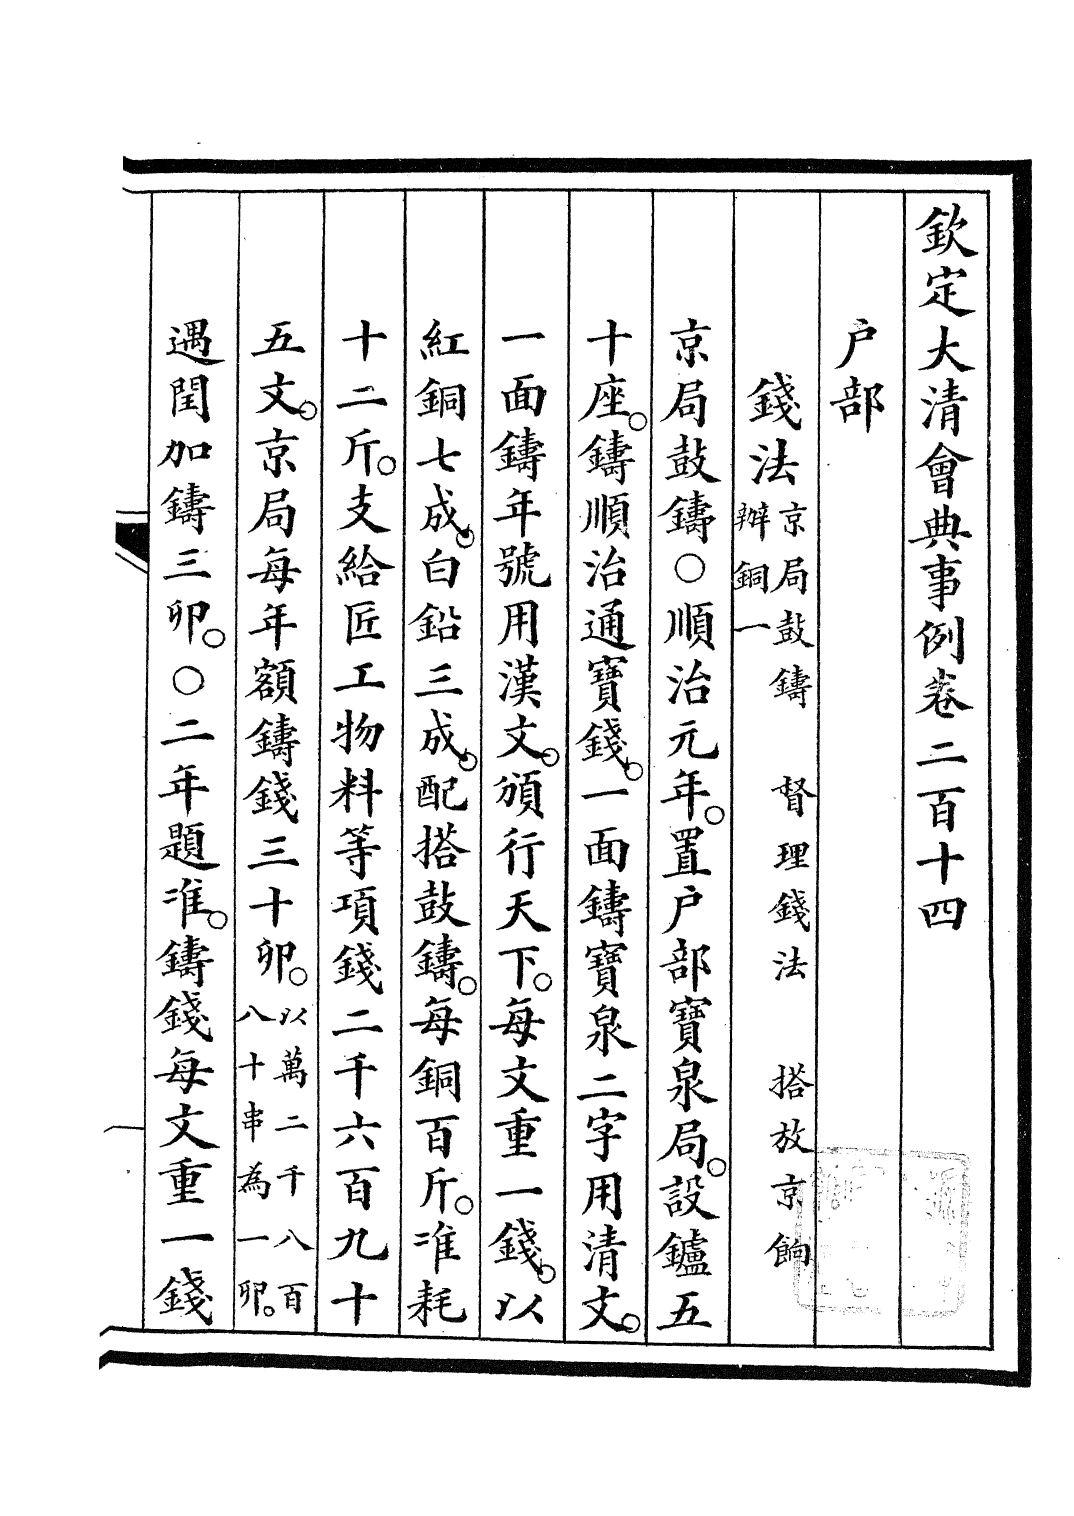 欽定大清會典事例卷二百十四
户部
錢法京局鼓鑄 督理錢法 搭放京餉
辦銅一
京局鼓鑄○順治元年。置户部寶泉局。設鑪五
十座。鑄順治通寶錢。一面鑄寶泉二字用清文。
一面鑄年號用漢文。頒行天下。每文重一錢。以
紅銅七成。白鉛三成。配搭鼓鑄。每銅百斤。准耗
十二斤。支給匠工物料等項錢二千六百九十
五文。京局每年額鑄錢三十卯。以萬二千八百
八十串為一卯。
遇閏加鑄三卯。○二年題准。鑄錢每文重一錢